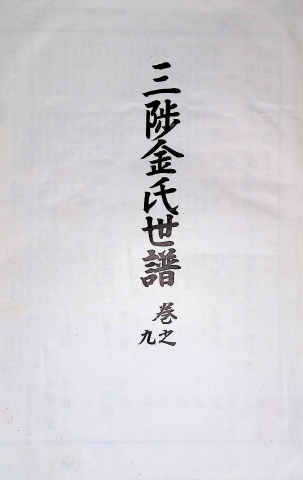 三陟金氏世譜
卷之九